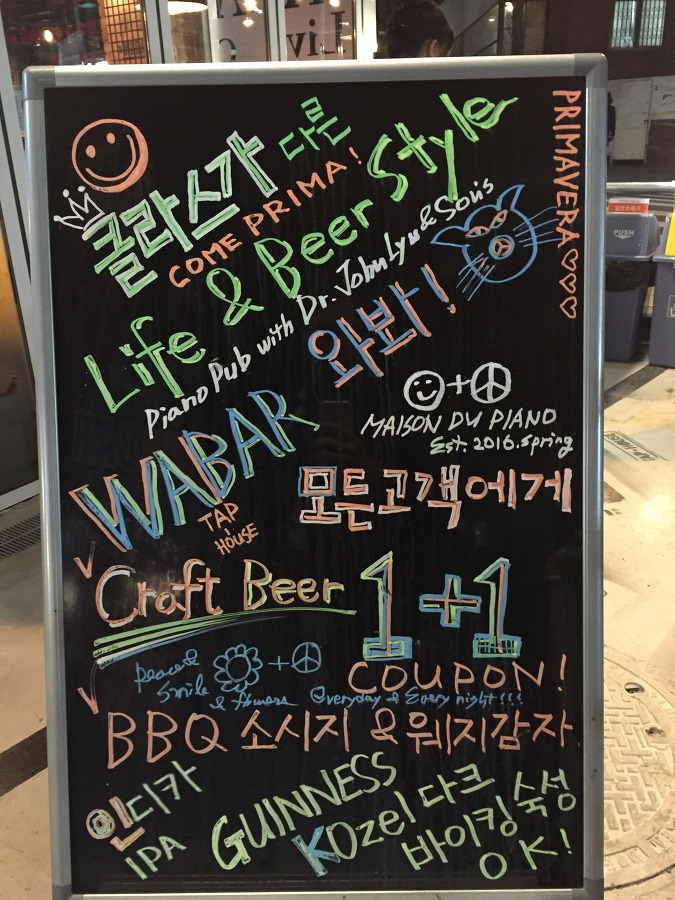 클라스가 다른
COME PRIMA!
Life & Beer Style
Piano Pub with Dr. John Lyu & Sons
와봐!
PRIMAVERA
MAISON DU PIANO
Est. 2016. Spring
WABAR
TAP HOUSE
모든고객에게
Craft Beer 1+1
COUPON!
peace &
smile
& flowers
everyday & Every night!!!
BBQ 소시지 & 웨지감자
인디카
IPA
GUINNESS
KOzel 다크
바이킹 숙성
OK!
PUSH
Liv